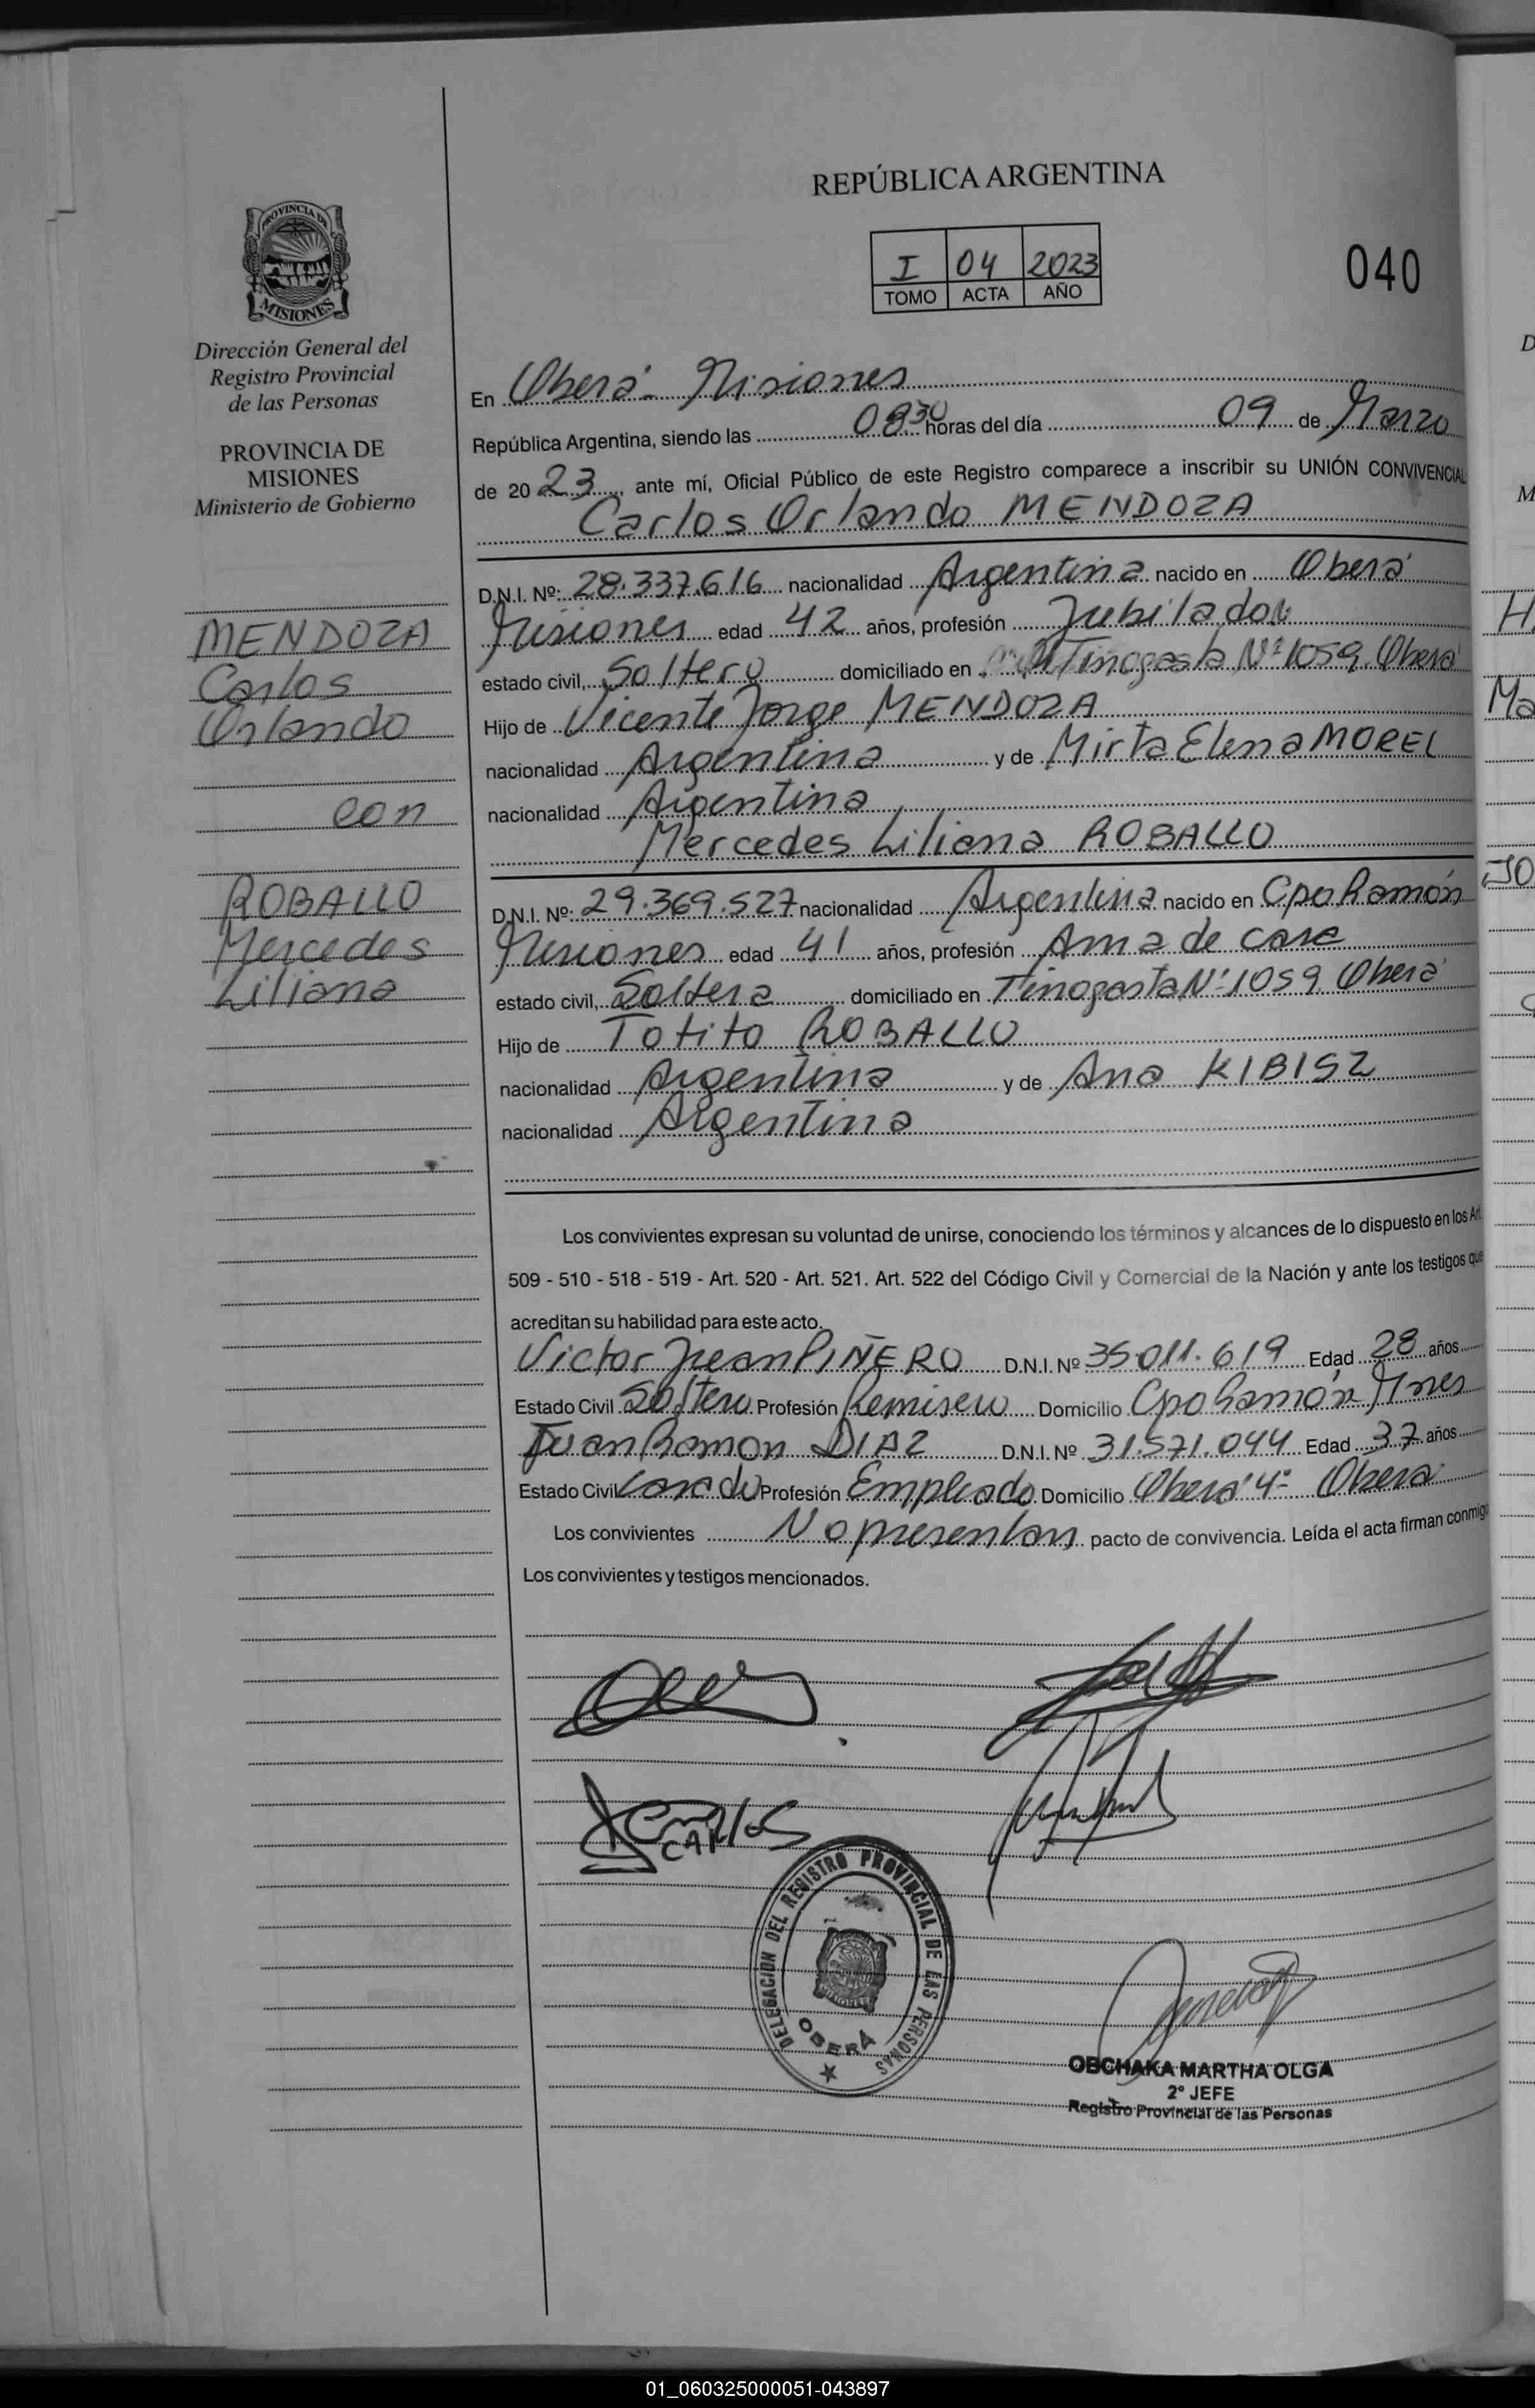 REPÚBLICA ARGENTINA
I 04 2023
TOMO ACTA AÑO
040
PROVINCIA DE
MISIONES
Dirección General del
Registro Provincial
de las Personas
PROVINCIA DE
MISIONES
Ministerio de Gobierno
MENDOZA
Carlos
Orlando
con
ROBALLO
Mercedes
Liliana
En Oberá - Misiones
República Argentina, siendo las 08:30 horas del día 09 de Marzo
de 20 23, ante mí, Oficial Público de este Registro comparece a inscribir su UNIÓN CONVIVENCIAL
Carlos Orlando MENDOZA
D.N.I. Nº: 28.337.616 nacionalidad Argentina nacido en Oberá
Misiones edad 42 años, profesión Jubilado
estado civil, Soltero domiciliado en Tinogasta Nº 1059 Oberá
Hijo de Vicente Jorge MENDOZA
nacionalidad Argentina y de Mirta Elena MOREL
nacionalidad Argentina
Mercedes Liliana ROBALLO
D.N.I. Nº: 29.369.527 nacionalidad Argentina nacido en Cpo Ramón
Misiones edad 41 años, profesión Ama de casa
estado civil, Soltera domiciliado en Tinogasta Nº 1059 Oberá
Hijo de Totito ROBALLO
nacionalidad Argentina y de Ana KIBISZ
nacionalidad Argentina
Los convivientes expresan su voluntad de unirse, conociendo los términos y alcances de lo dispuesto en los Art.
509 - 510 - 518 - 519 - Art. 520 - Art. 521. Art. 522 del Código Civil y Comercial de la Nación y ante los testigos que
acreditan su habilidad para este acto.
Victor Juan PIÑERO D.N.I. Nº 35.011.619 Edad 28 años
Estado Civil Soltero Profesión Remisero Domicilio Cpo Ramón Mnes
Juan Ramon DIAZ D.N.I. Nº 31.571.044 Edad 37 años
Estado Civil Casado Profesión Empleado Domicilio Oberá 4º Oberá
Los convivientes No presentan pacto de convivencia. Leída el acta firman conmigo
Los convivientes y testigos mencionados.
CARLOS
DELEGACION DEL REGISTRO PROVINCIAL DE LAS PERSONAS
OBERÁ
OBCHAKA MARTHA OLGA
2º JEFE
Registro Provincial de las Personas
01_060325000051-043897